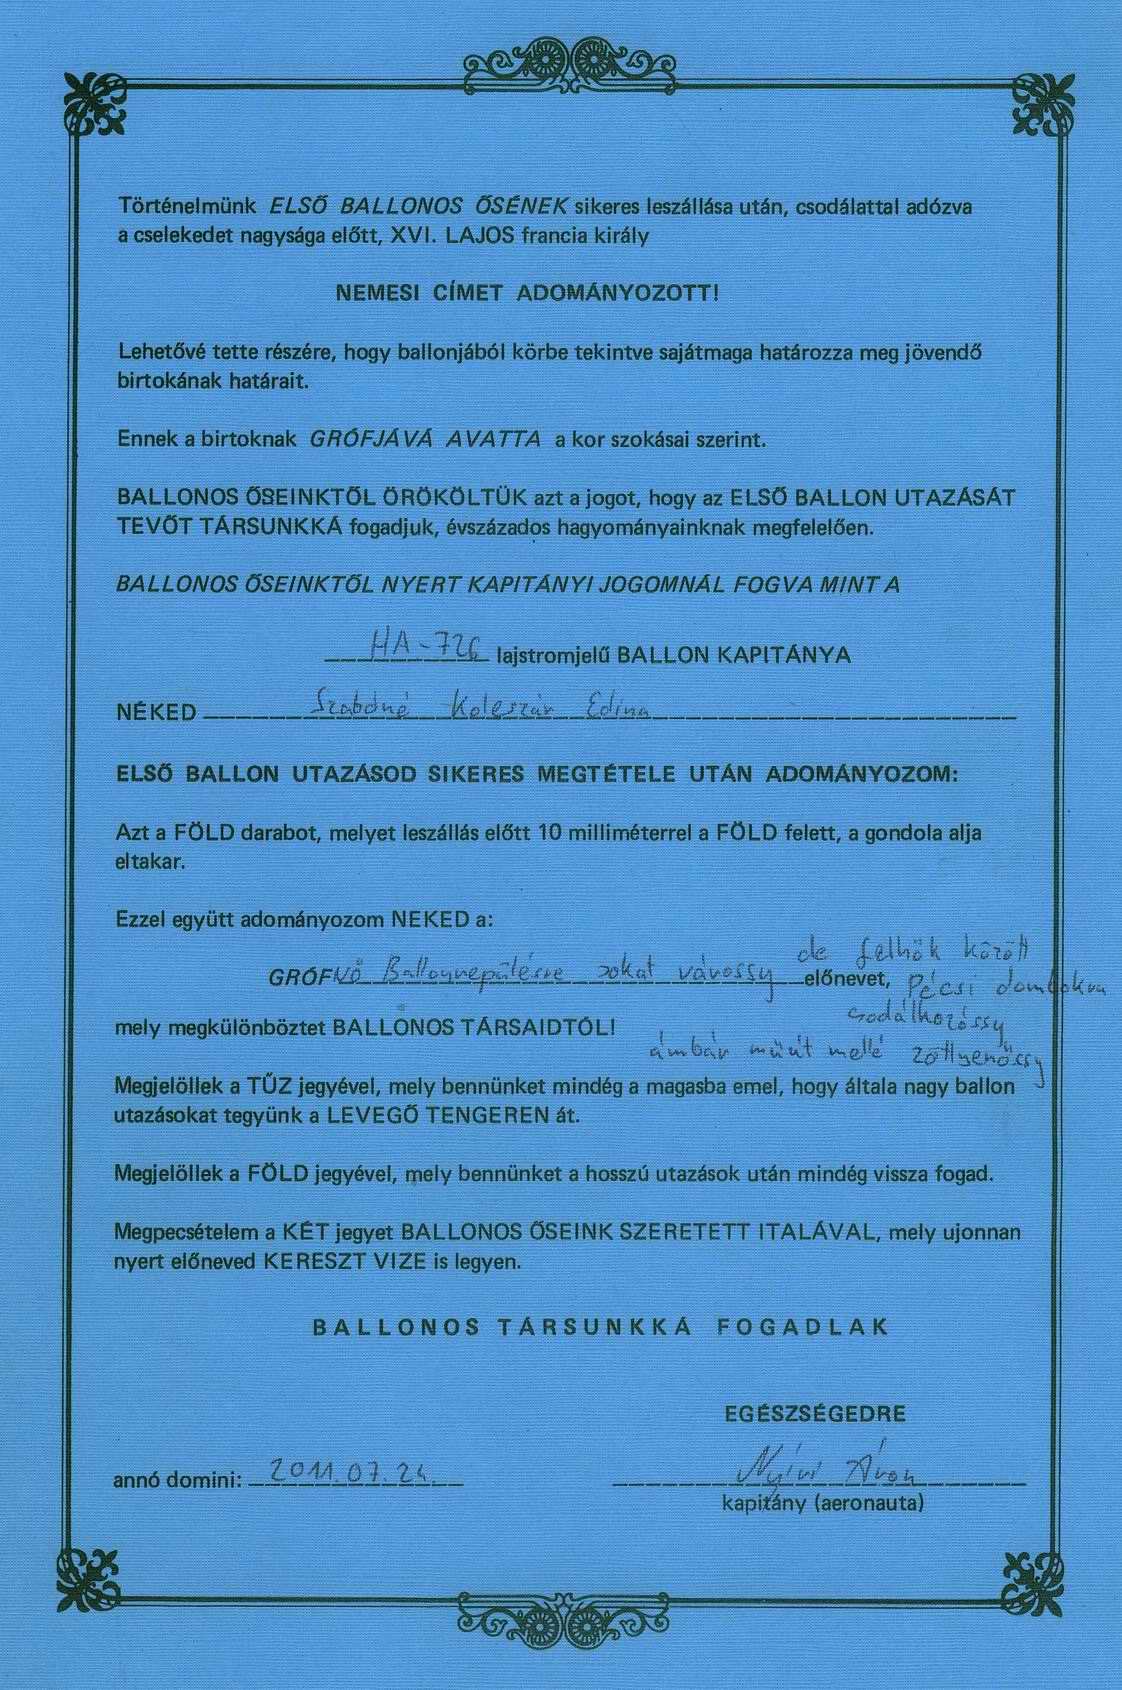 Történelmünk ELSŐ BALLONOS ŐSÉNEK sikeres leszállása után, csodálattal adózva
a cselekedet nagysága előtt, XVI. LAJOS francia király
NEMESI CÍMET ADOMÁNYOZOTT!
Lehetővé tette részére, hogy ballonjából körbe tekintve sajátmaga határozza meg jövendő
birtokának határait.
Ennek a birtoknak GRÓFJÁVÁ AVATTA a kor szokásai szerint.
BALLONOS ŐSEINKTŐL ÖRÖKÖLTÜK azt a jogot, hogy az ELSŐ BALLON UTAZÁSÁT
TEVŐT TÁRSUNKKÁ fogadjuk, évszázados hagyományainknak megfelelően.
BALLONOS ŐSEINKTŐL NYERT KAPITÁNYI JOGOMNÁL FOGVA MINT A
HA-726 lajstromjelű BALLON KAPITÁNYA
NÉKED Szabóné Koleszár Edina
ELSŐ BALLON UTAZÁSOD SIKERES MEGTÉTELE UTÁN ADOMÁNYOZOM:
Azt a FÖLD darabot, melyet leszállás előtt 10 milliméterrel a FÖLD felett, a gondola alja
eltakar.
Ezzel együtt adományozom NEKED a:
GRÓFNŐ Ballonrepülésre sokat várossy előnevet,
de felhők között
Pécsi dombokra
csodálkozóssy
ámbár műút mellé zöttyenőssy
mely megkülönböztet BALLONOS TÁRSAIDTÓL!
Megjelöllek a TŰZ jegyével, mely bennünket mindég a magasba emel, hogy általa nagy ballon
utazásokat tegyünk a LEVEGŐ TENGEREN át.
Megjelöllek a FÖLD jegyével, mely bennünket a hosszú utazások után mindég vissza fogad.
Megpecsételem a KÉT jegyet BALLONOS ŐSEINK SZERETETT ITALÁVAL, mely ujonnan
nyert előneved KERESZT VIZE is legyen.
BALLONOS TÁRSUNKKÁ FOGADLAK
EGÉSZSÉGEDRE
annó domini: 2011.07.24. Nyíri Áron
kapitány (aeronauta)